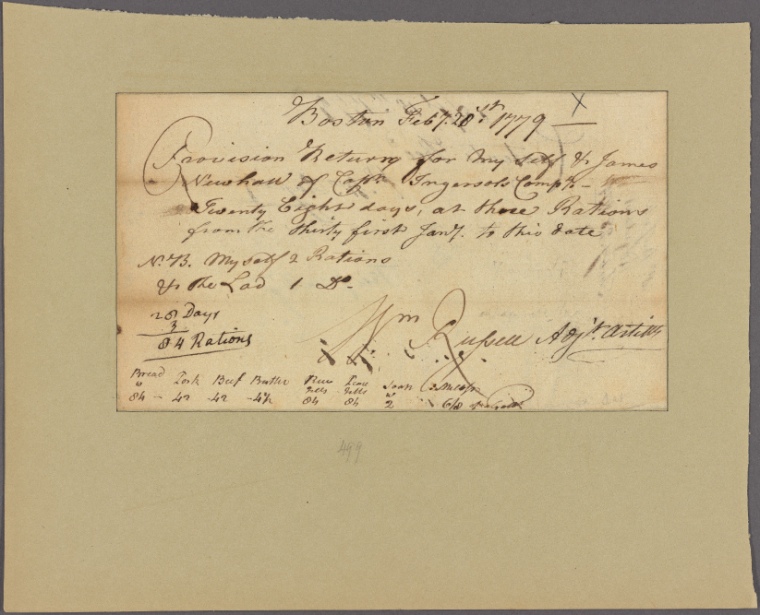 X
Boston Feby. 28st. 1779
Provision Return for My Self & James
Newhall of Capt. Ingersols Compy.
Twenty Eight days, at three Rations
from the thirty first Jany. to this date
N.B. My self 2 Rations
& the Lad 1 Do.
28 Days
3
84 Rations
Wm Russell Adjt. Artilly
Bread Pork Beef Butter Rice Peas Soap Candles
84 42 42 4½ Gills 84 Gills 84 2
499